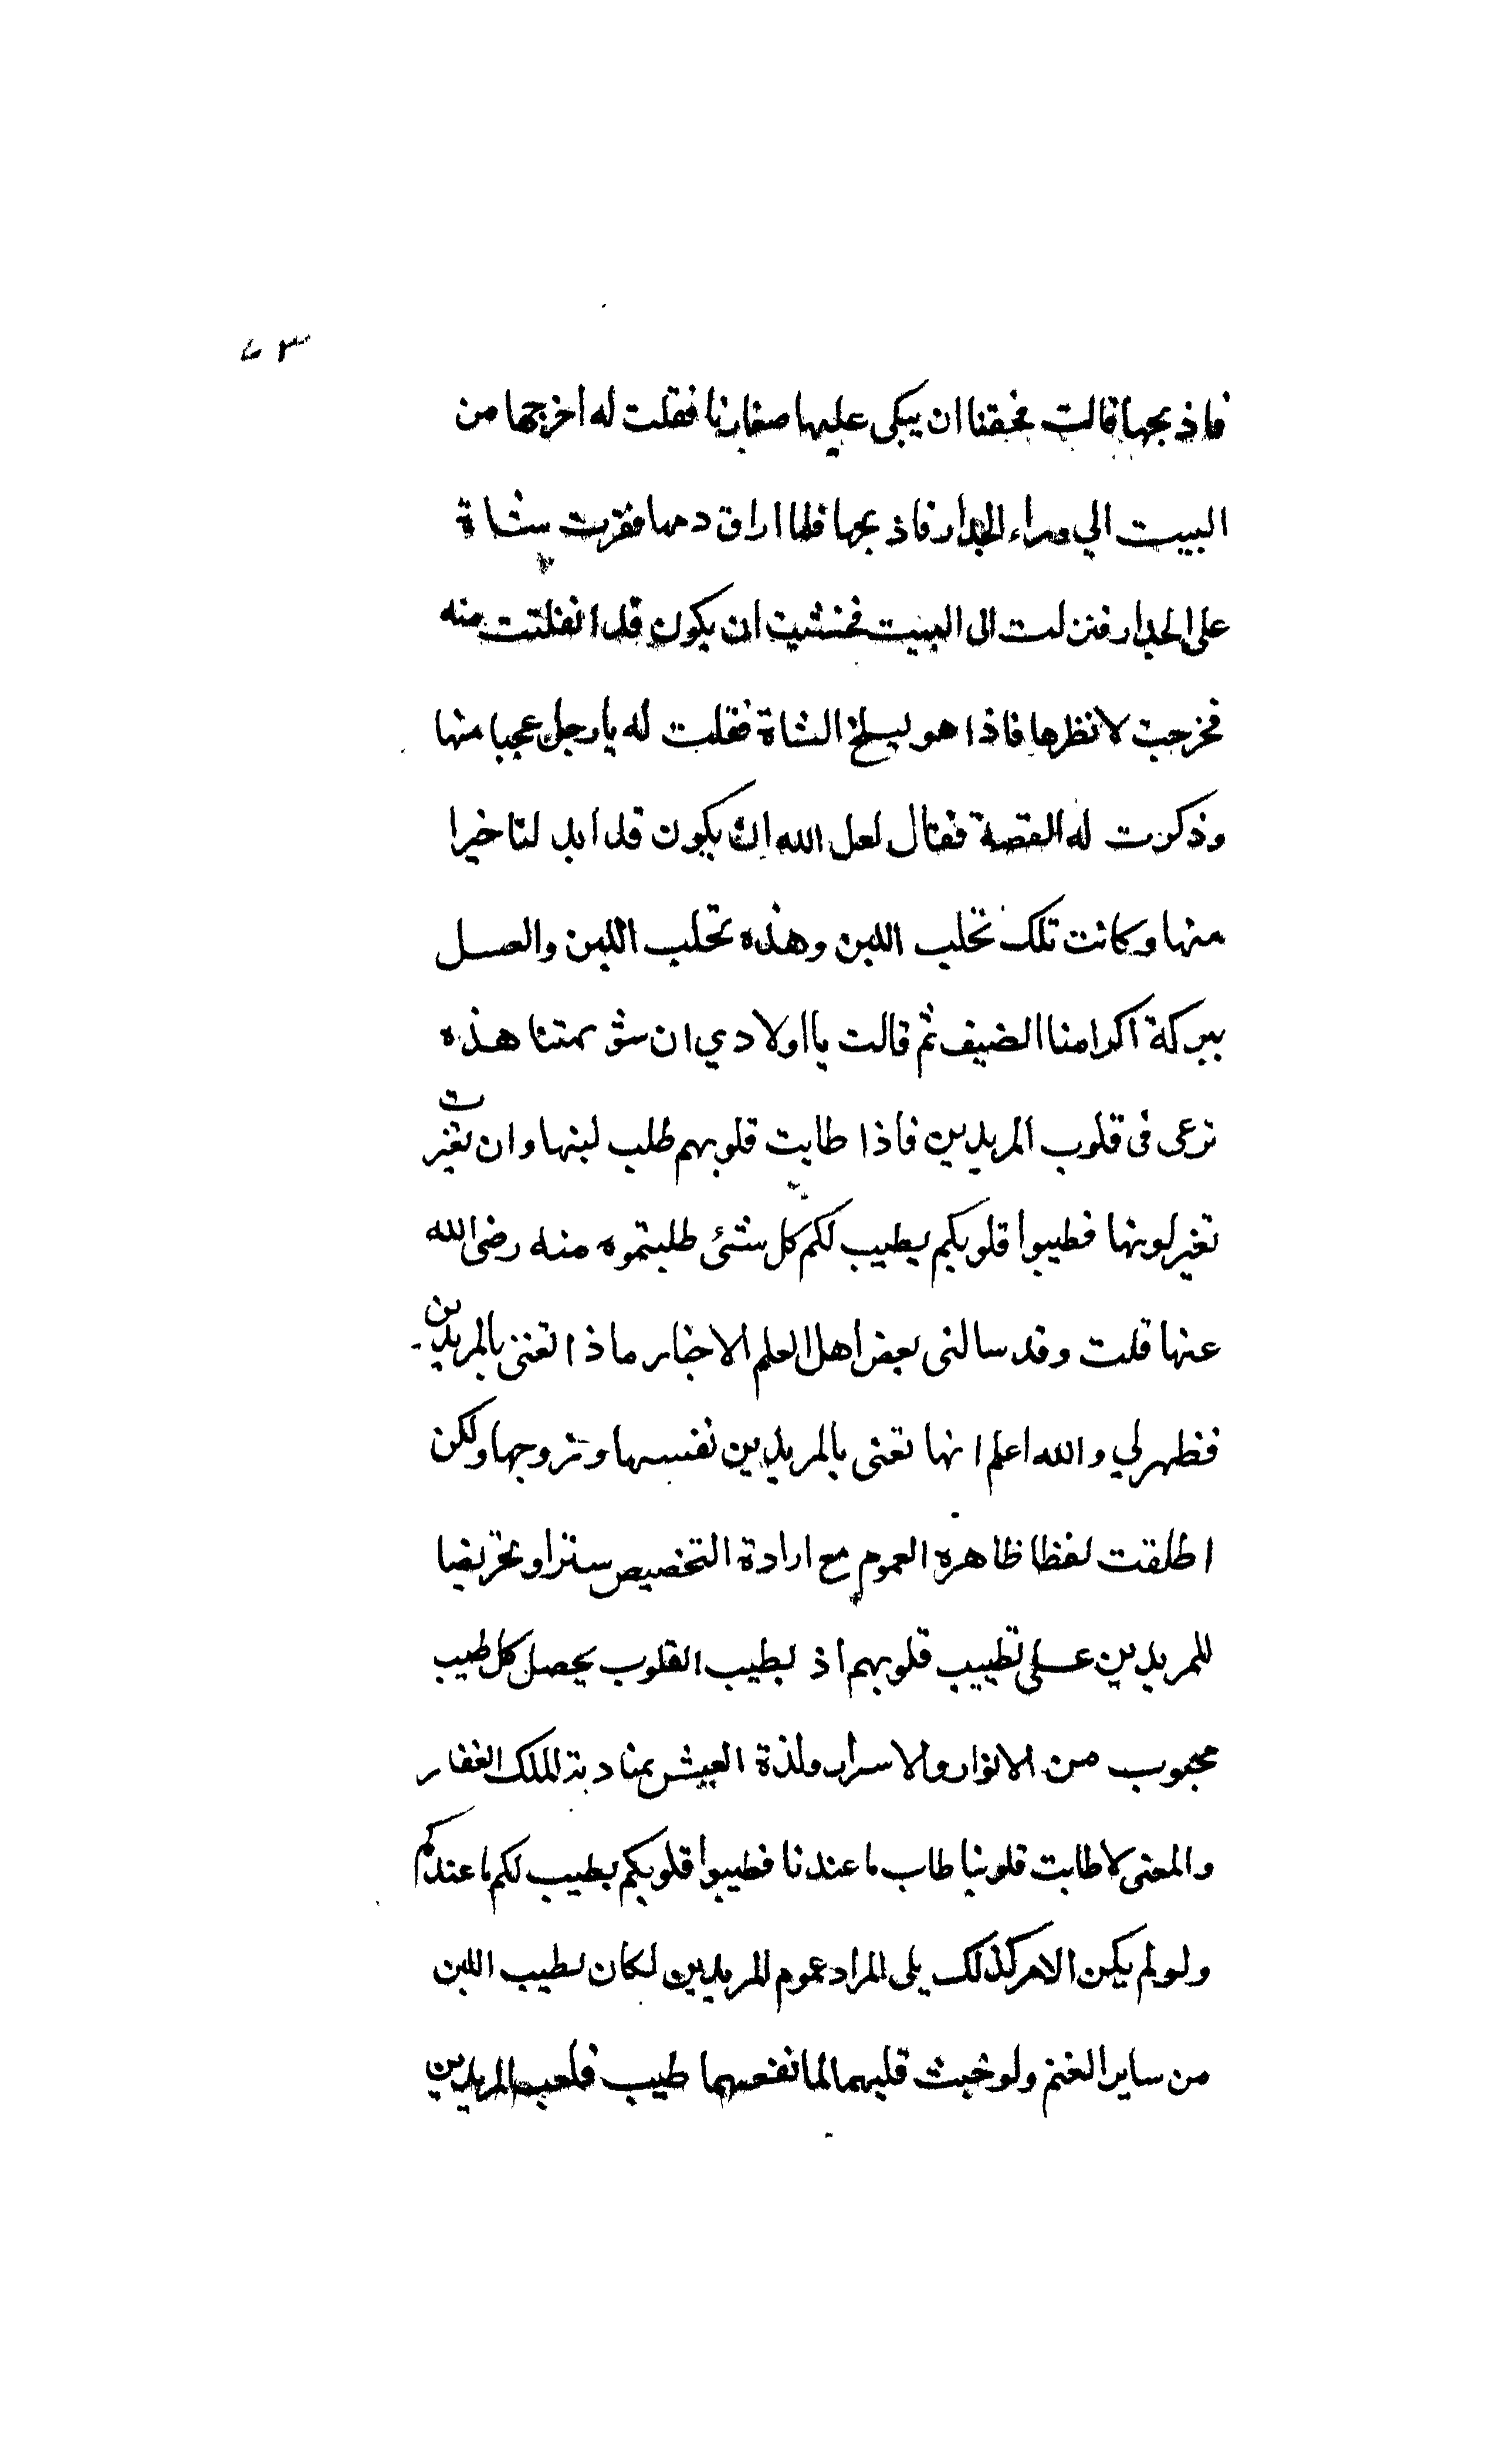 فاذبحها قالت فخفنا ان يبكى عليها صغارنا فقلت له اخرجها من
البيت الي وراء الجدار فاذبحها فلما اراق دمها فقزت شاة
على الجدار فنزلت الى البيت فخشيت ان يكون قد انفلتت منه
فخرجت لانظرها فاذا هو يسلخ الشاة فقلت له يا رجل عجبا منها
وذكرت له القصة فقال لعل الله ان يكون قد ابد لنا خيرا
منها وكانت تلك تحلب اللبن وهذه تحلب اللبن والعسل
ببركة اكرامنا الضيف ثم قالت يا اولادي ان شويهتنا هذه
ترعى فى قلوب المريدين فاذا طابت قلوبهم طلب لبنها وان تغيرت
تغير لونها فطيبوا قلوبكم يطيب لكم كل شئى طلبتموه منه رضى الله
عنها قلت وقد سالنى بعض اهل العلم الاخيار ماذا تعنى بالمريدين
فظهر لي والله اعلم انها تعنى بالمريدين نفسها وزوجها ولكن
اطلقت لفظا ظاهره العموم مع ارادة التخصيص سترا وتحريضا
للمريدين على تطييب قلوبهم اذ بطيب القلوب يحصل كل طيب
محبوب من الانوار والاسرار ولذة العيش بمنادمة الملك الغفار
والمعنى لما طابت قلوبنا طاب ما عندنا فطيبوا قلوبكم يطيب لكم ما عندكم
ولو لم يكن الامر كذلك بل المراد عموم المريدين لكان يطيب اللبن
من ساير الغنم ولو خبث قلبهما لما نفعهما طيب قلب المريدين